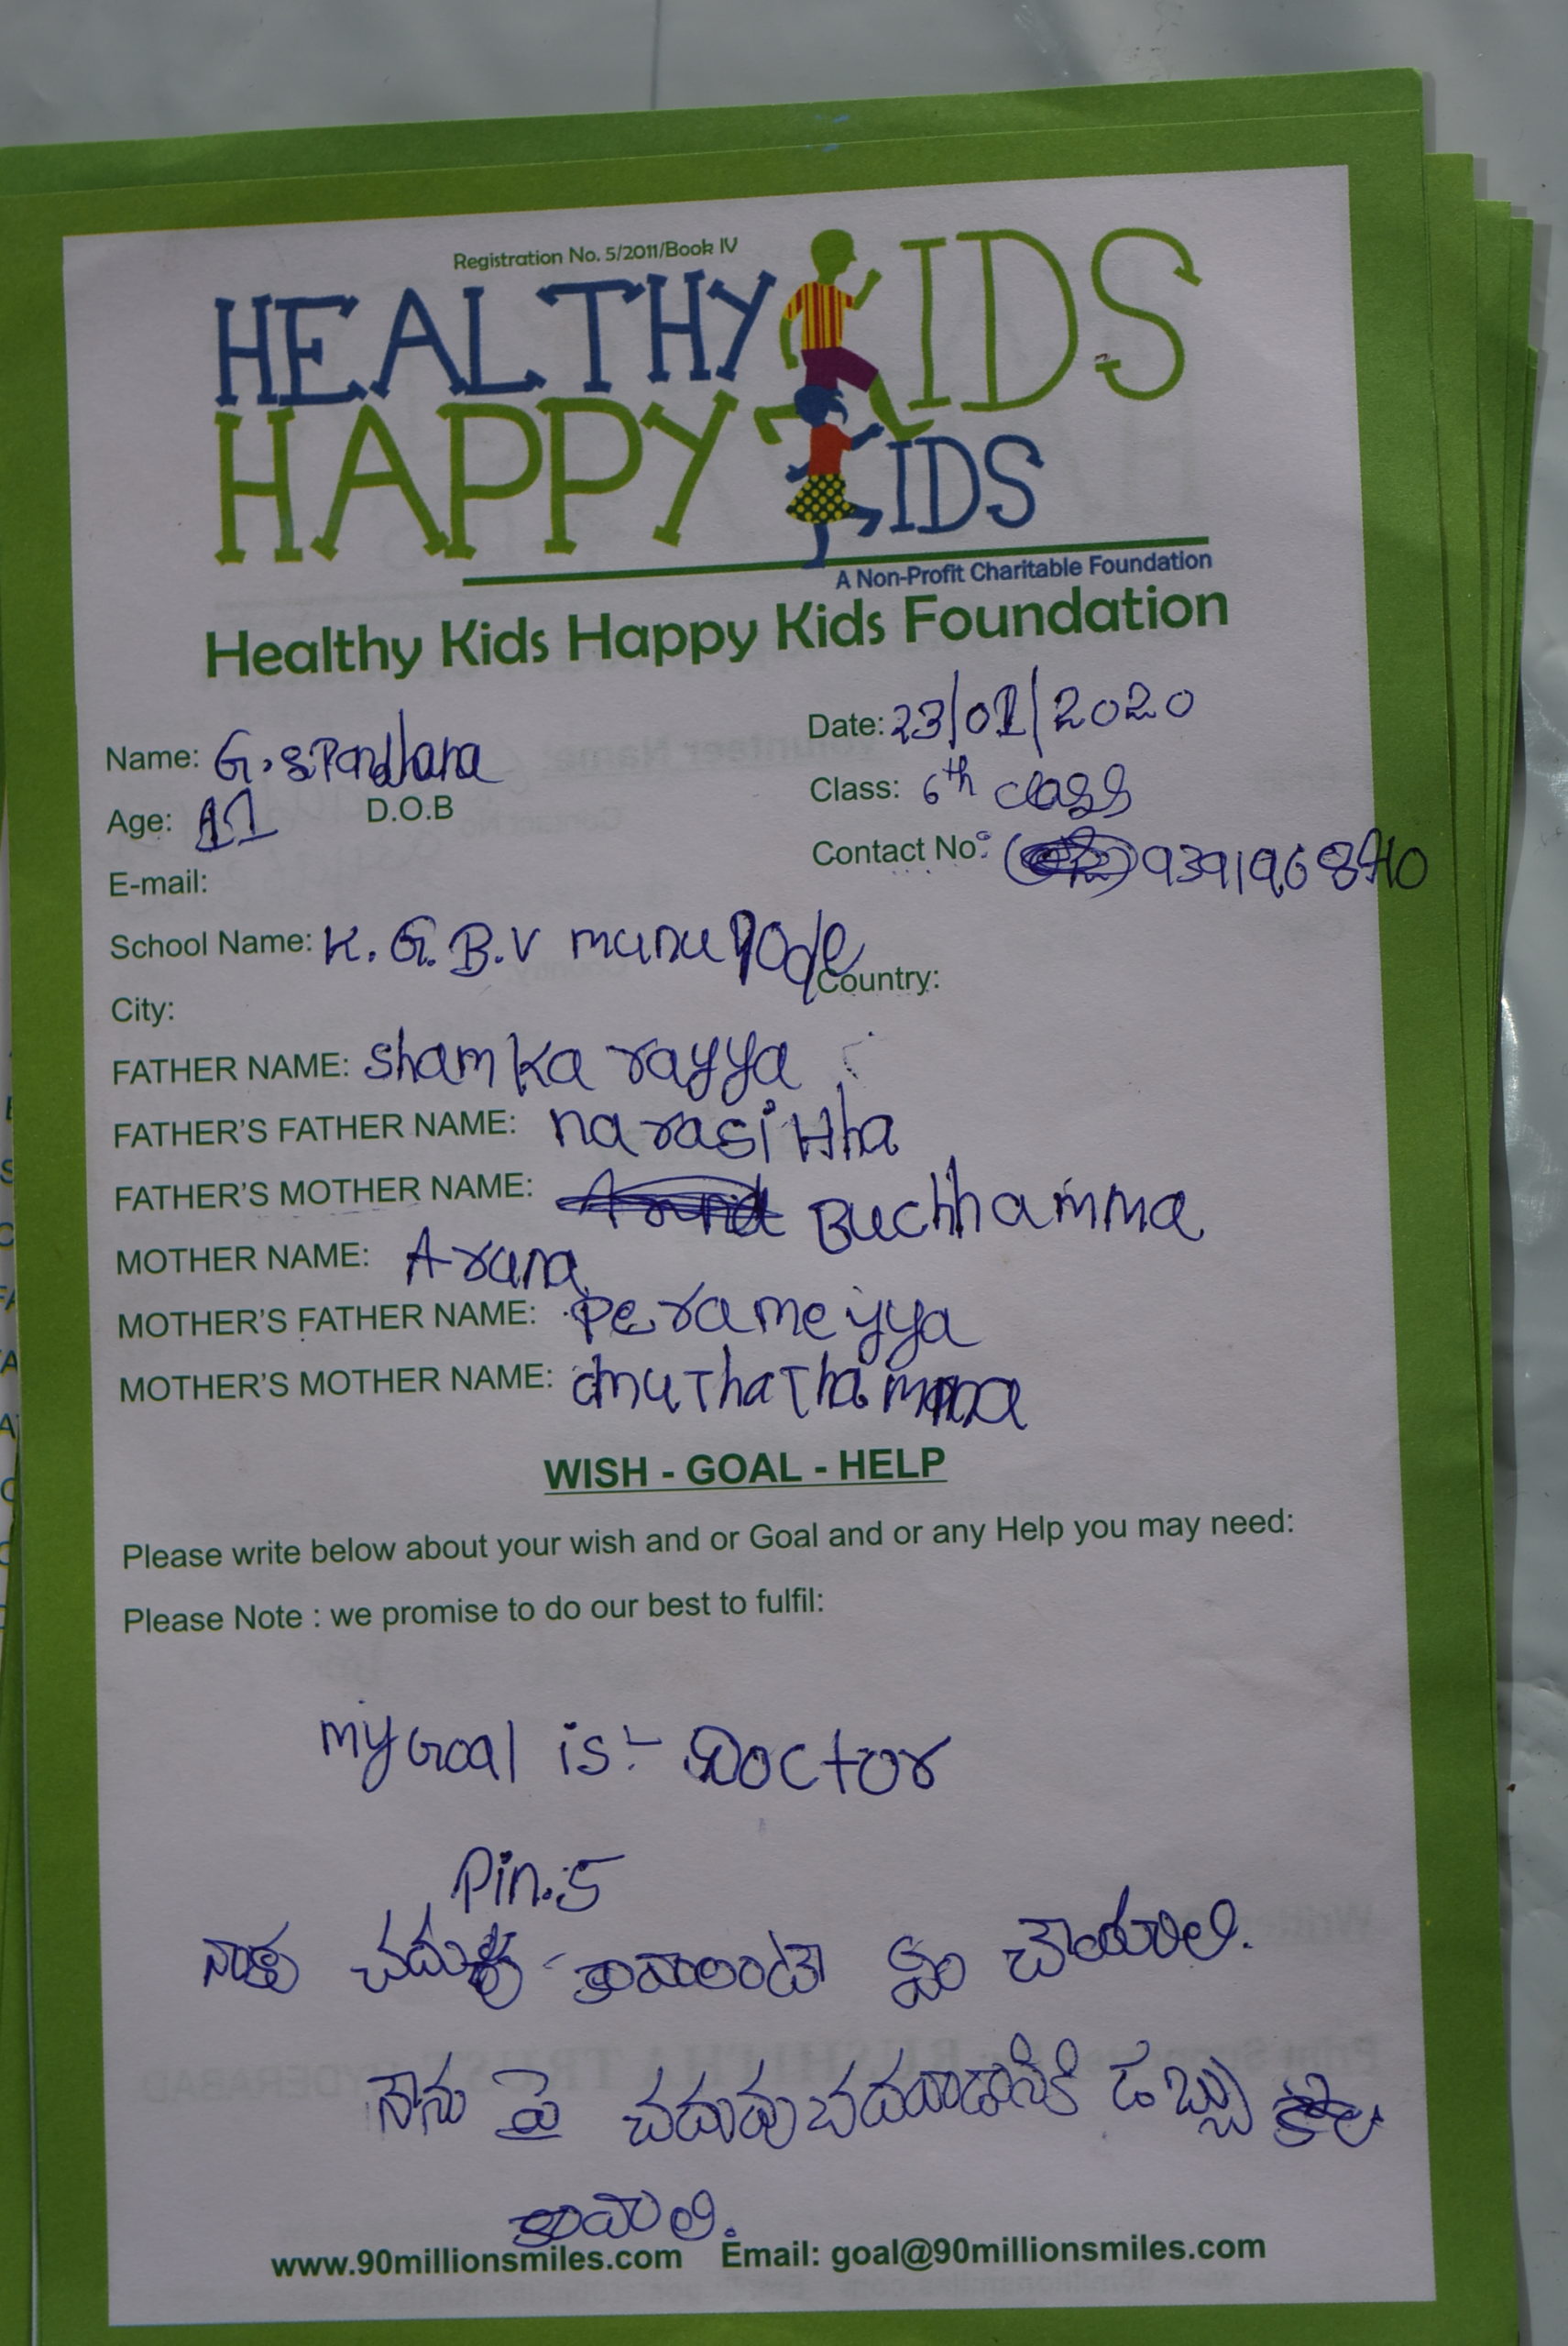 Registration No. 5/2011/Book IV
HEALTHY KIDS
HAPPY KIDS
A Non-Profit Charitable Foundation
Healthy Kids Happy Kids Foundation
Name: G. SPandhana Date: 23/01/2020
Age: 11 D.O.B Class: 6th class
E-mail: Contact No:
School Name: K. G. B. V
City: Country:
FATHER NAME: sham ka rayya
FATHER'S FATHER NAME: narasi Hha
FATHER'S MOTHER NAME: Buchhamma
MOTHER NAME: Aruna
MOTHER'S FATHER NAME: Perameiyya
MOTHER'S MOTHER NAME:
WISH - GOAL - HELP
Please write below about your wish and or Goal and or any Help you may need:
Please Note : we promise to do our best to fulfil:
my Goal is:- Doctor
Pin.5
నాకు కావాలంటే చేయాలి.
నేను పై డబ్బు
కావాలి.
www.90millionsmiles.com Email: goal@90millionsmiles.com